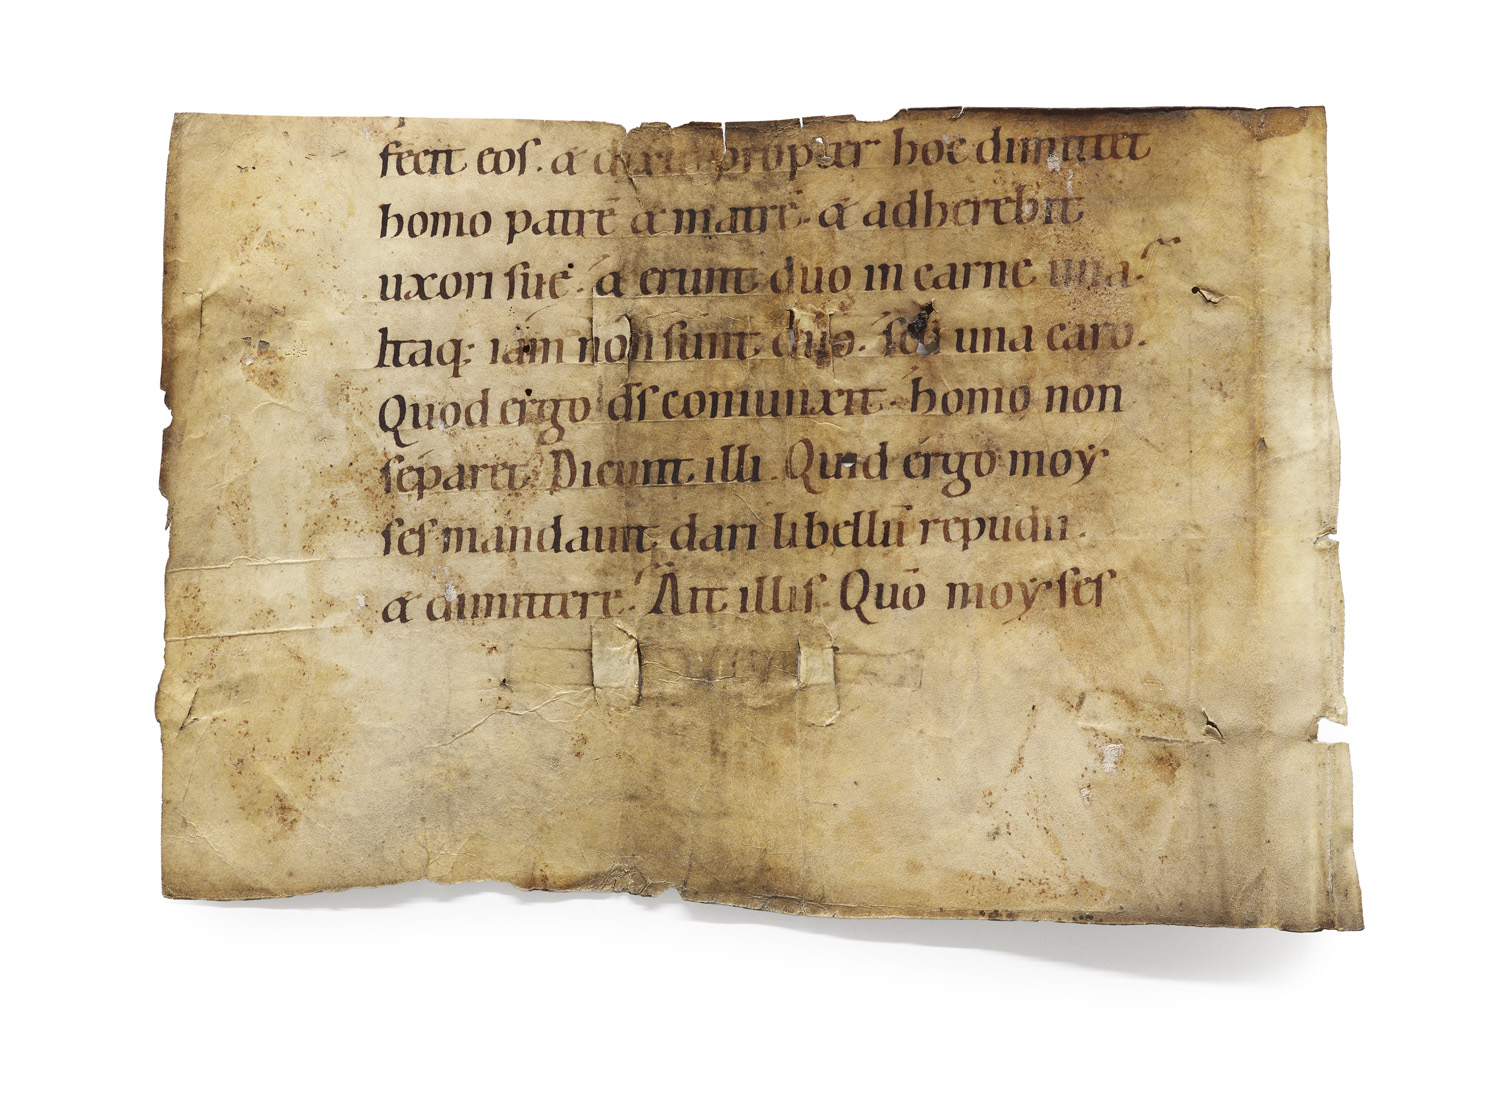 fecit eos. & dixit propter hoc dimittet
homo patrē & matrē. & adherebit
uxori suę. & erunt duo in carne una.
Itaq; iam non sunt duo. sed una caro.
Quod ergo d̄s coniunxit. homo non
separet. Dicunt illi. Quid ergo moy
ses mandauit dari libellū repudii.
& dimittere. Ait illis. Quō moyses